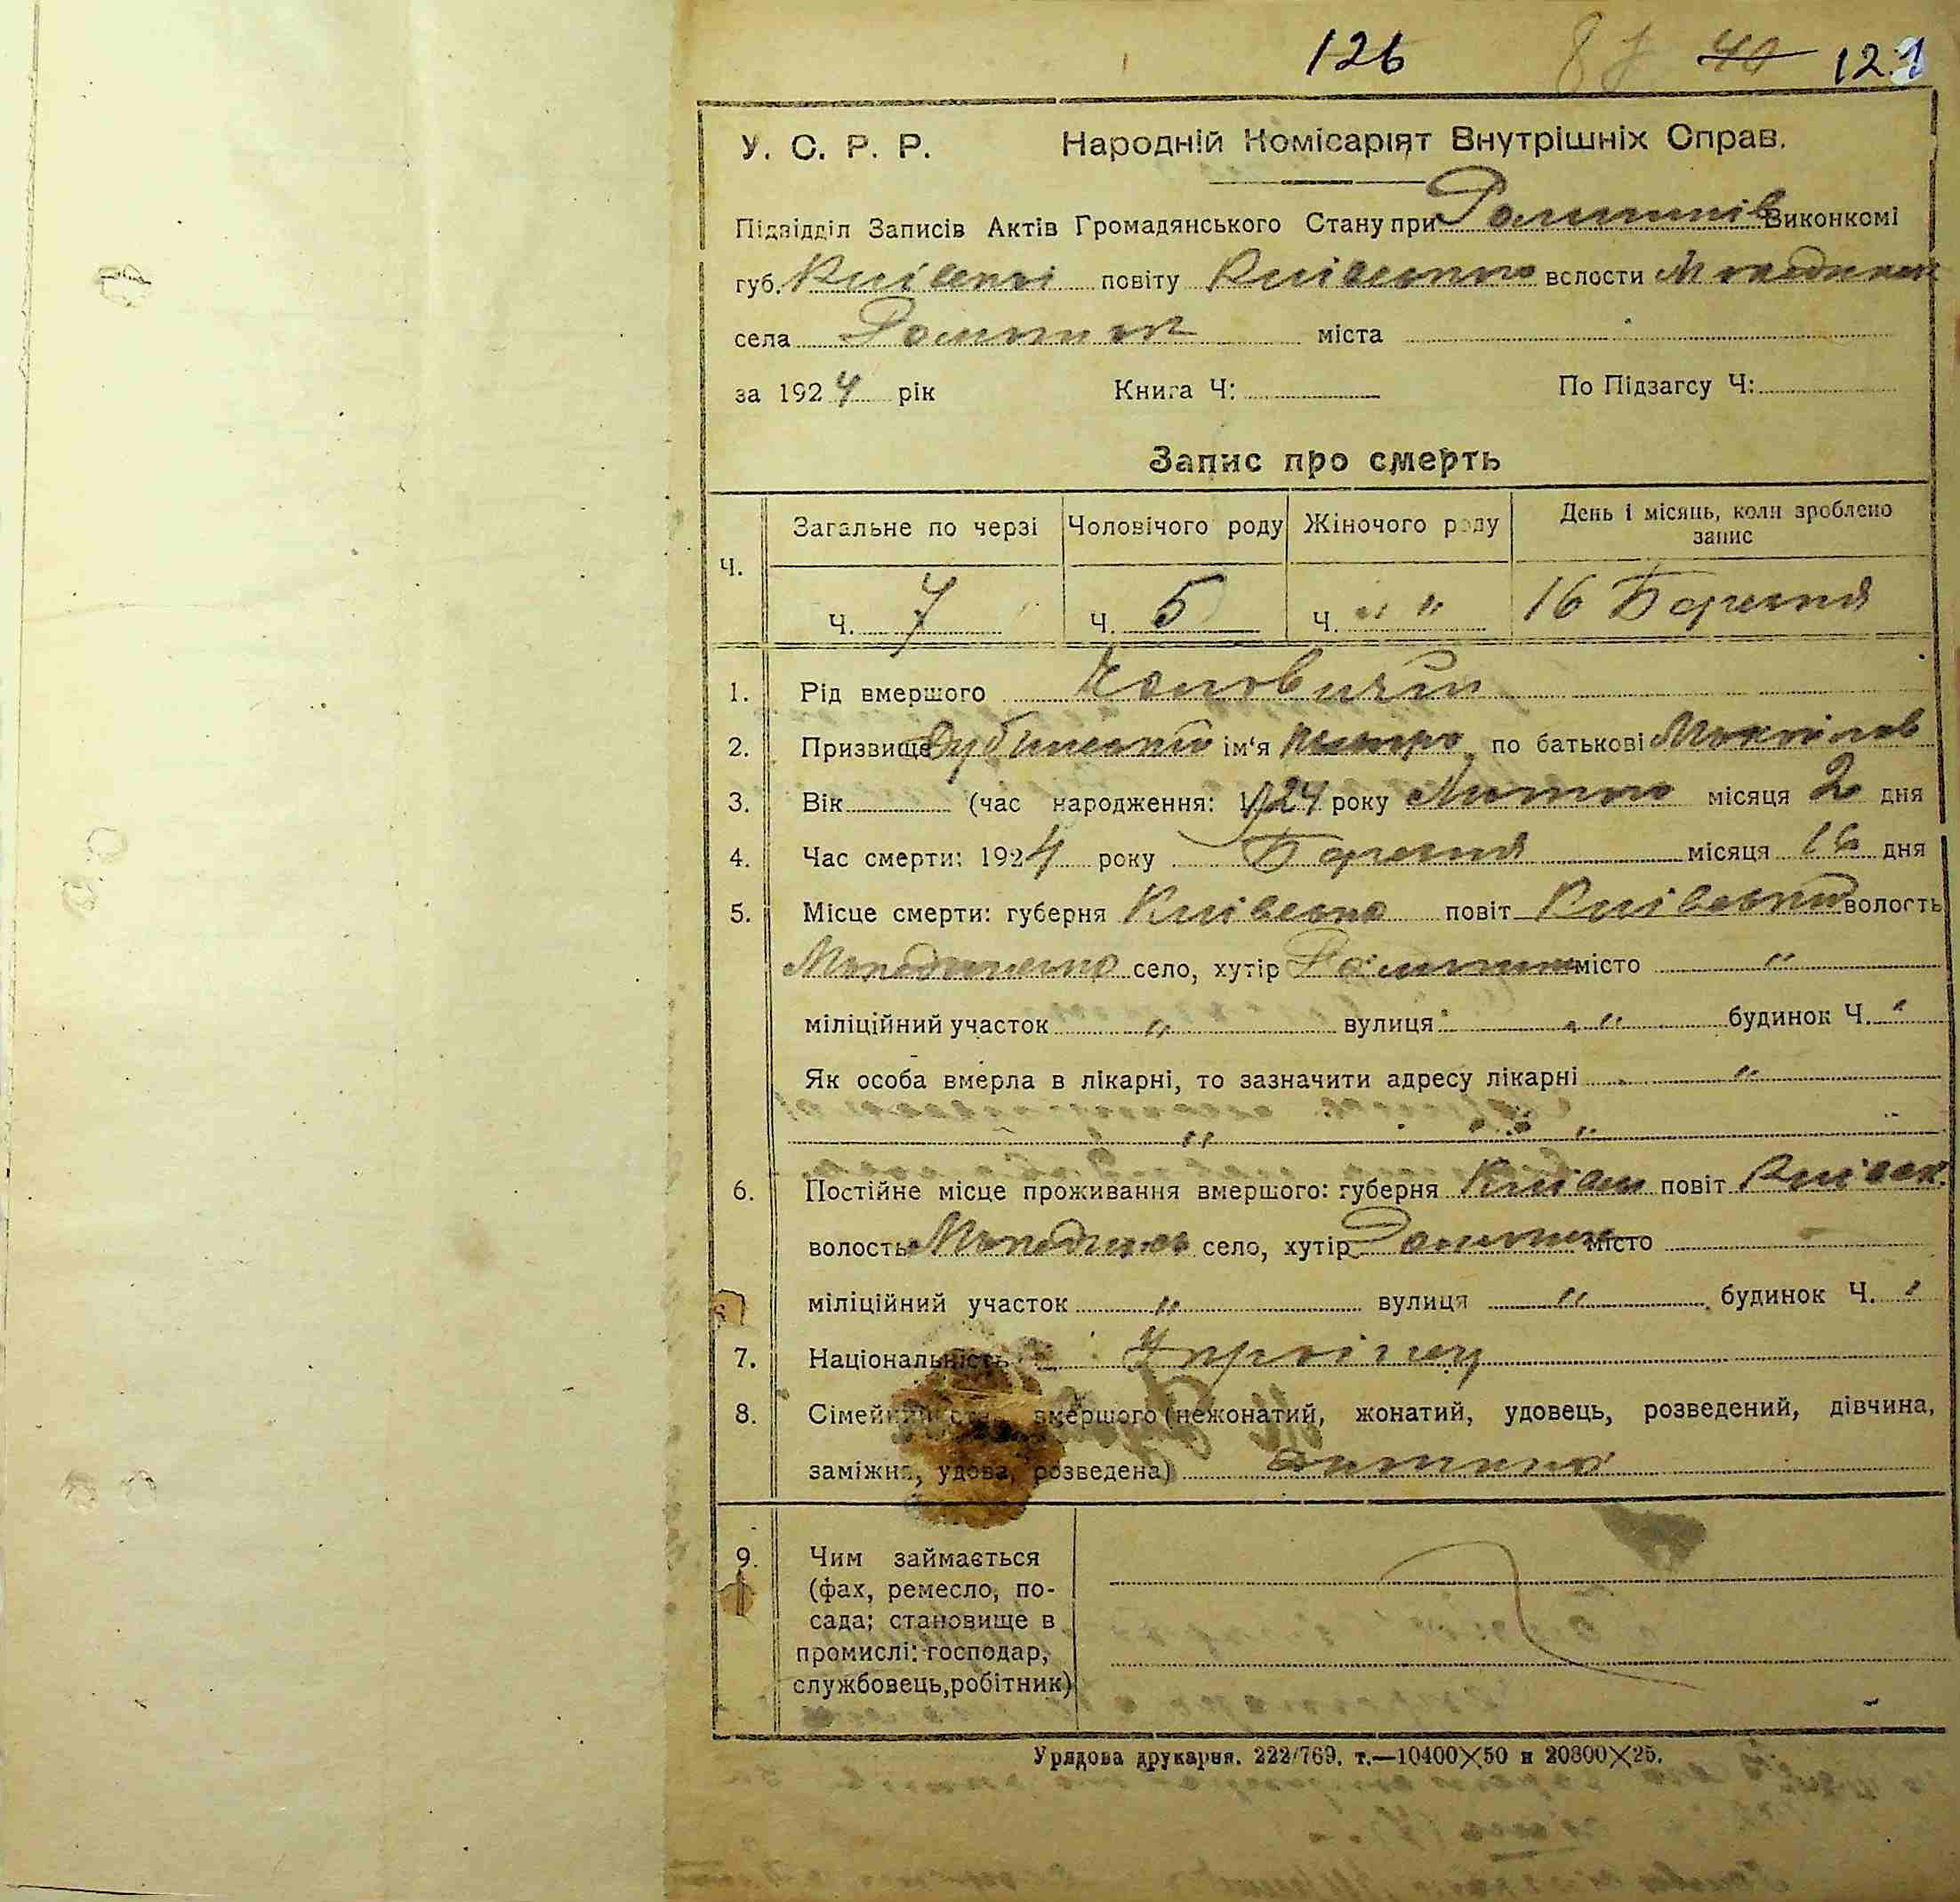 126 121
У. С. Р. Р. Народній Комісаріят Внутрішніх Справ.
Підвідділ Записів Актів Громадянського Стану при Виконкомі
губ. Київської повіту Київського волости
села міста
за 1924 рік Книга Ч: По Підзагсу Ч:
Запис про смерть
Загальне по черзі Чоловічого роду Жіночого роду День і місяць, коли зроблено запис
Ч. Ч. 7 Ч. 5 Ч. " " 16 Березня
1. Рід вмершого Чоловичій
2. Призвище Дубинський ім'я Петро по батькові
3. Вік (час народження: 1924 року Лютого місяця 2 дня
4. Час смерти: 1924 року Березня місяця 16 дня
5. Місце смерти: губерня Київська повіт Київський волость
село, хутір місто "
міліційний участок " вулиця " будинок Ч. "
Як особа вмерла в лікарні, то зазначити адресу лікарні "
" "
6. Постійне місце проживання вмершого: губерня Київськ повіт Київськ.
волость село, хутір місто
міліційний участок " вулиця " будинок Ч. "
7. Національність Українец
8. Сімейний стан вмершого (нежонатий, жонатий, удовець, розведений, дівчина,
заміжня, удова, розведена) дитина
9. Чим займається
(фах, ремесло, по-
сада; становище в
промислі: господар,
службовець, робітник)
Урядова друкарня. 222/769. т.—10400×50 и 20800×25.